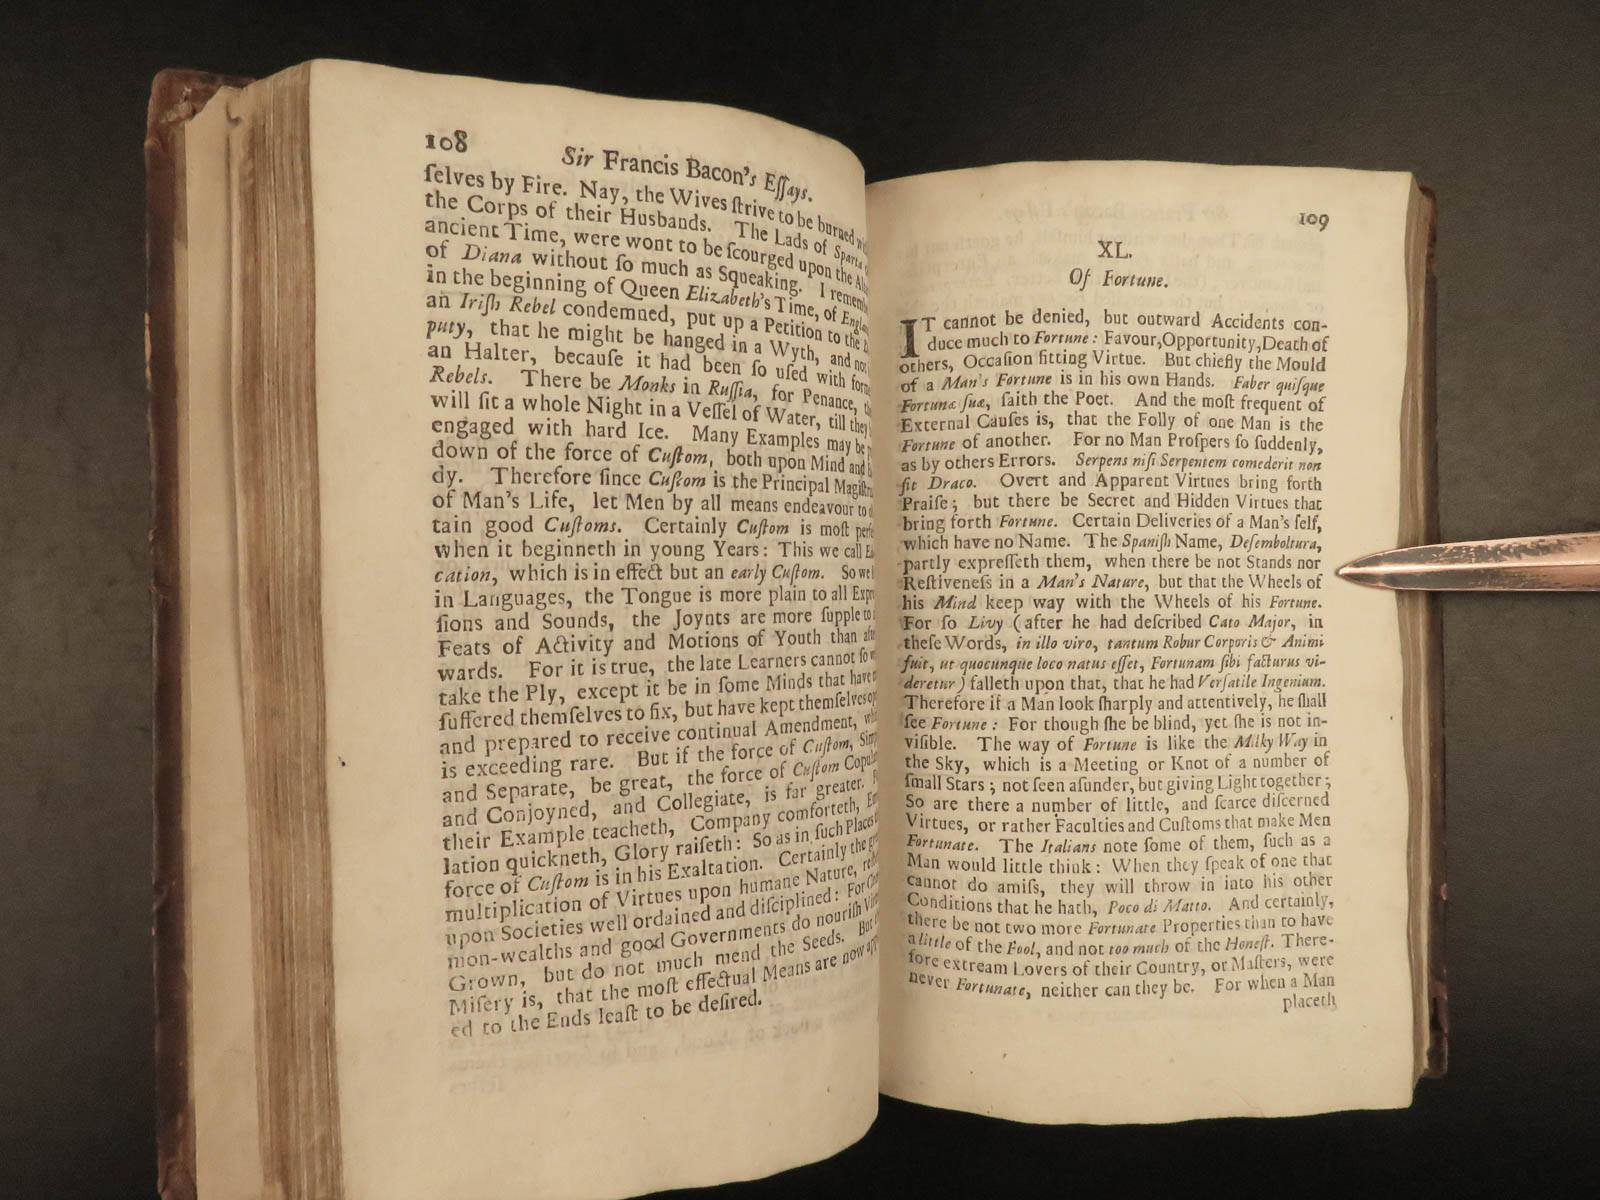 108
Sir Francis Bacon's Eſſays.
ſelves by Fire. Nay, the Wives ſtrive to be burned
the Corps of their Husbands. The Lads of Sparta
ancient Time, were wont to be ſcourged upon the
of Diana without ſo much as Squeaking. I
in the beginning of Queen Elizabeth's Time, of
an Iriſh Rebel condemned, put up a Petition to the
puty, that he might be hanged in a Wyth, and
an Halter, becauſe it had been ſo uſed with
Rebels. There be Monks in Ruſſia, for Penance,
will ſit a whole Night in a Veſſel of Water, till they
engaged with hard Ice. Many Examples may be
down of the force of Cuſtom, both upon Mind and
dy. Therefore ſince Cuſtom is the Principal
of Man's Life, let Men by all means endeavour to
tain good Cuſtoms. Certainly Cuſtom is moſt
when it beginneth in young Years: This we call
cation, which is in effect but an early Cuſtom. So
in Languages, the Tongue is more plain to all
ſions and Sounds, the Joynts are more ſupple to
Feats of Activity and Motions of Youth than
wards. For it is true, the late Learners cannot ſo
take the Ply, except it be in ſome Minds that have
ſuffered themſelves to fix, but have kept themſelves
and prepared to receive continual Amendment,
is exceeding rare. But if the force of Cuſtom,
and Separate, be great, the force of Cuſtom
and Conjoyned, and Collegiate, is far greater.
their Example teacheth, Company comforteth,
lation quickneth, Glory raiſeth: So as in ſuch Places
force of Cuſtom is in his Exaltation. Certainly the
multiplication of Virtues upon humane Nature,
upon Societies well ordained and diſciplined: For
mon-wealths and good Governments do nouriſh
Grown, but do not much mend the Seeds. But
Miſery is, that the moſt effectual Means are now
ed to the Ends leaſt to be deſired.
109
XL.
Of Fortune.
IT cannot be denied, but outward Accidents con-
duce much to Fortune: Favour, Opportunity, Death of
others, Occaſion fitting Virtue. But chiefly the Mould
of a Man's Fortune is in his own Hands. Faber quiſque
Fortunæ ſuæ, ſaith the Poet. And the moſt frequent of
External Cauſes is, that the Folly of one Man is the
Fortune of another. For no Man Proſpers ſo ſuddenly,
as by others Errors. Serpens niſi Serpentem comederit non
fit Draco. Overt and Apparent Virtues bring forth
Praiſe; but there be Secret and Hidden Virtues that
bring forth Fortune. Certain Deliveries of a Man's ſelf,
which have no Name. The Spaniſh Name, Deſemboltura,
partly expreſſeth them, when there be not Stands nor
Reſtiveneſs in a Man's Nature, but that the Wheels of
his Mind keep way with the Wheels of his Fortune.
For ſo Livy (after he had deſcribed Cato Major, in
theſe Words, in illo viro, tantum Robur Corporis & Animi
fuit, ut quocunque loco natus eſſet, Fortunam ſibi facturus vi-
deretur) falleth upon that, that he had Verſatile Ingenium.
Therefore if a Man look ſharply and attentively, he ſhall
ſee Fortune: For though ſhe be blind, yet ſhe is not in-
viſible. The way of Fortune is like the Milky Way in
the Sky, which is a Meeting or Knot of a number of
ſmall Stars; not ſeen aſunder, but giving Light together;
So are there a number of little, and ſcarce diſcerned
Virtues, or rather Faculties and Cuſtoms that make Men
Fortunate. The Italians note ſome of them, ſuch as a
Man would little think: When they ſpeak of one that
cannot do amiſs, they will throw in into his other
Conditions that he hath, Poco di Matto. And certainly,
there be not two more Fortunate Properties than to have
a little of the Fool, and not too much of the Honeſt. There-
fore extream Lovers of their Country, or Maſters, were
never Fortunate, neither can they be. For when a Man
placeth